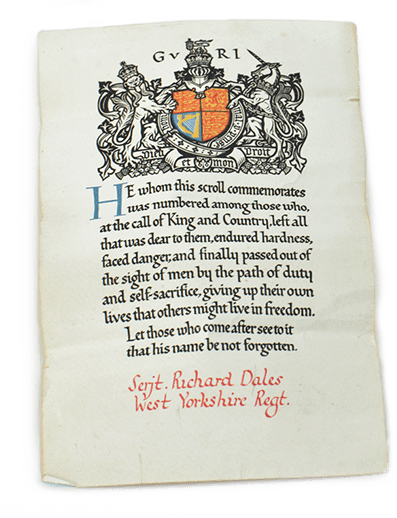 GVRI
Dieu et mon Droit
HE whom this scroll commemorates
was numbered among those who,
at the call of King and Country, left all
that was dear to them, endured hardness,
faced danger, and finally passed out of
the sight of men by the path of duty
and self-sacrifice, giving up their own
lives that others might live in freedom.
Let those who come after see to it
that his name be not forgotten.
Serjt. Richard Dales
West Yorkshire Regt.